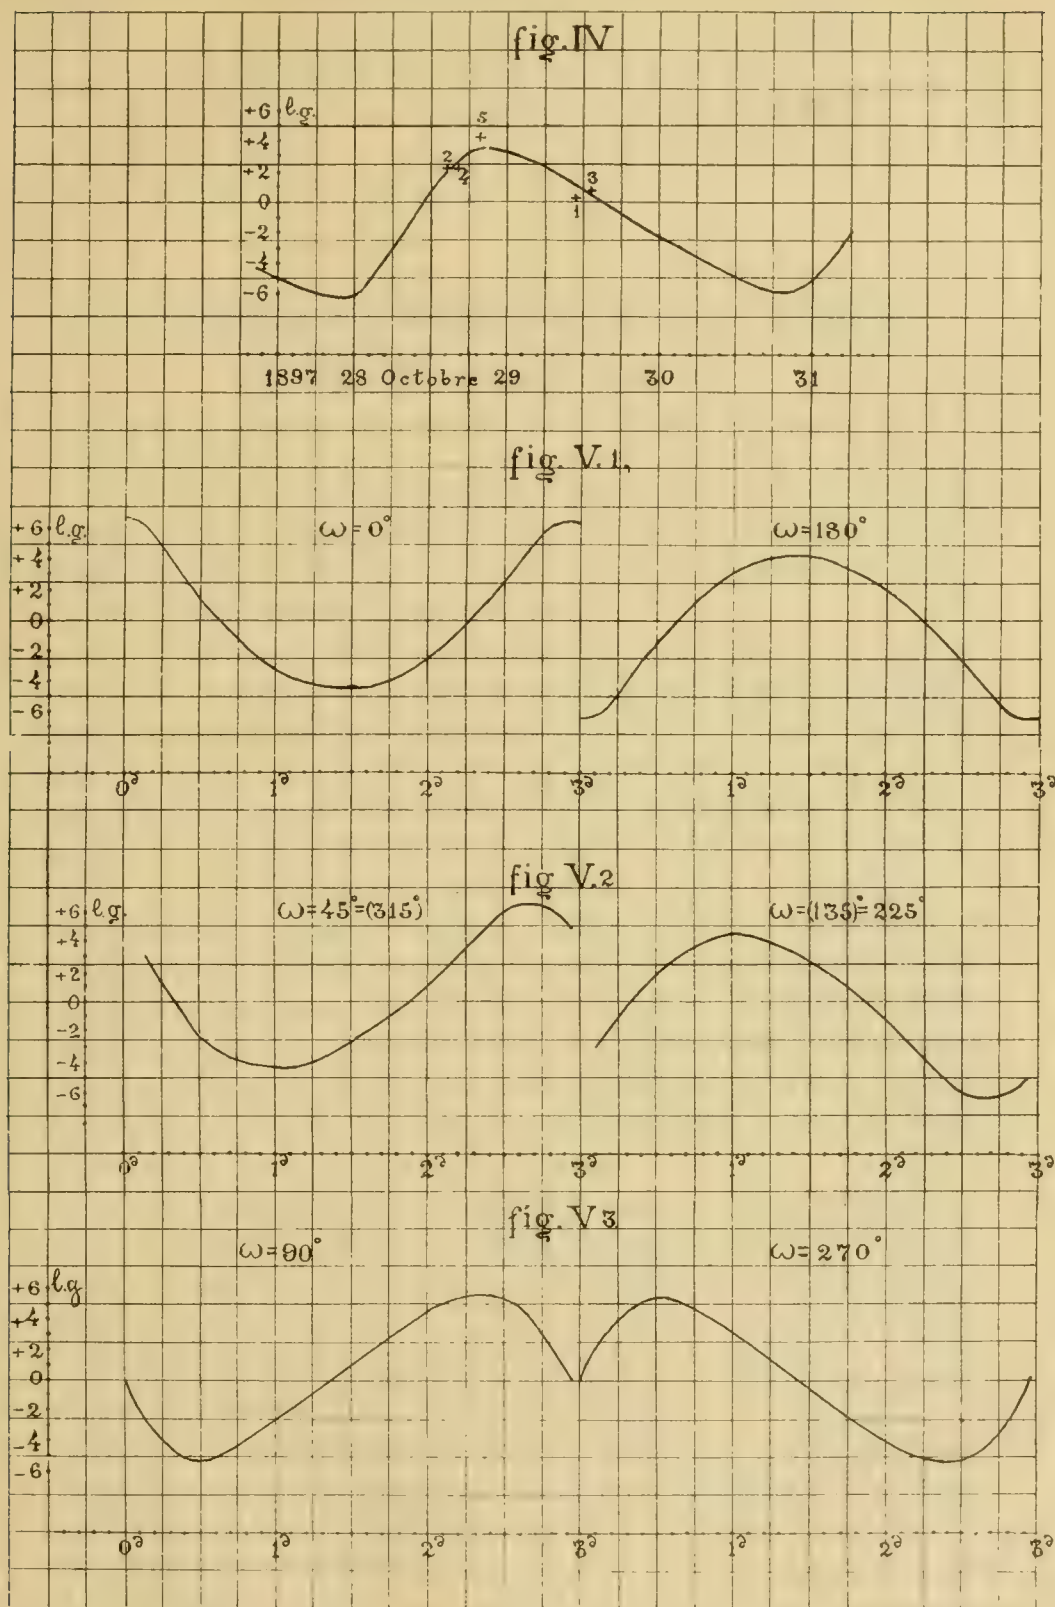 fig. IV
+6 l.g.
+4
+2
0
-2
-4
-6
5
2
4
3
1
1897 28 Octobre 29 30 31
fig. V.1,
+6 l.g.
+4
+2
0
-2
-4
-6
ω=0°
ω=180°
0ᵈ 1ᵈ 2ᵈ 3ᵈ 1ᵈ 2ᵈ 3ᵈ
fig V.2
+6 l.g.
+4
+2
0
-2
-4
-6
ω=45°=(315°)
ω=(135)°=225°
0ᵈ 1ᵈ 2ᵈ 3ᵈ 1ᵈ 2ᵈ 3ᵈ
fig. V 3
ω=90°
ω=270°
+6 l.g
+4
+2
0
-2
-4
-6
0ᵈ 1ᵈ 2ᵈ 3ᵈ 1ᵈ 2ᵈ 3ᵈ